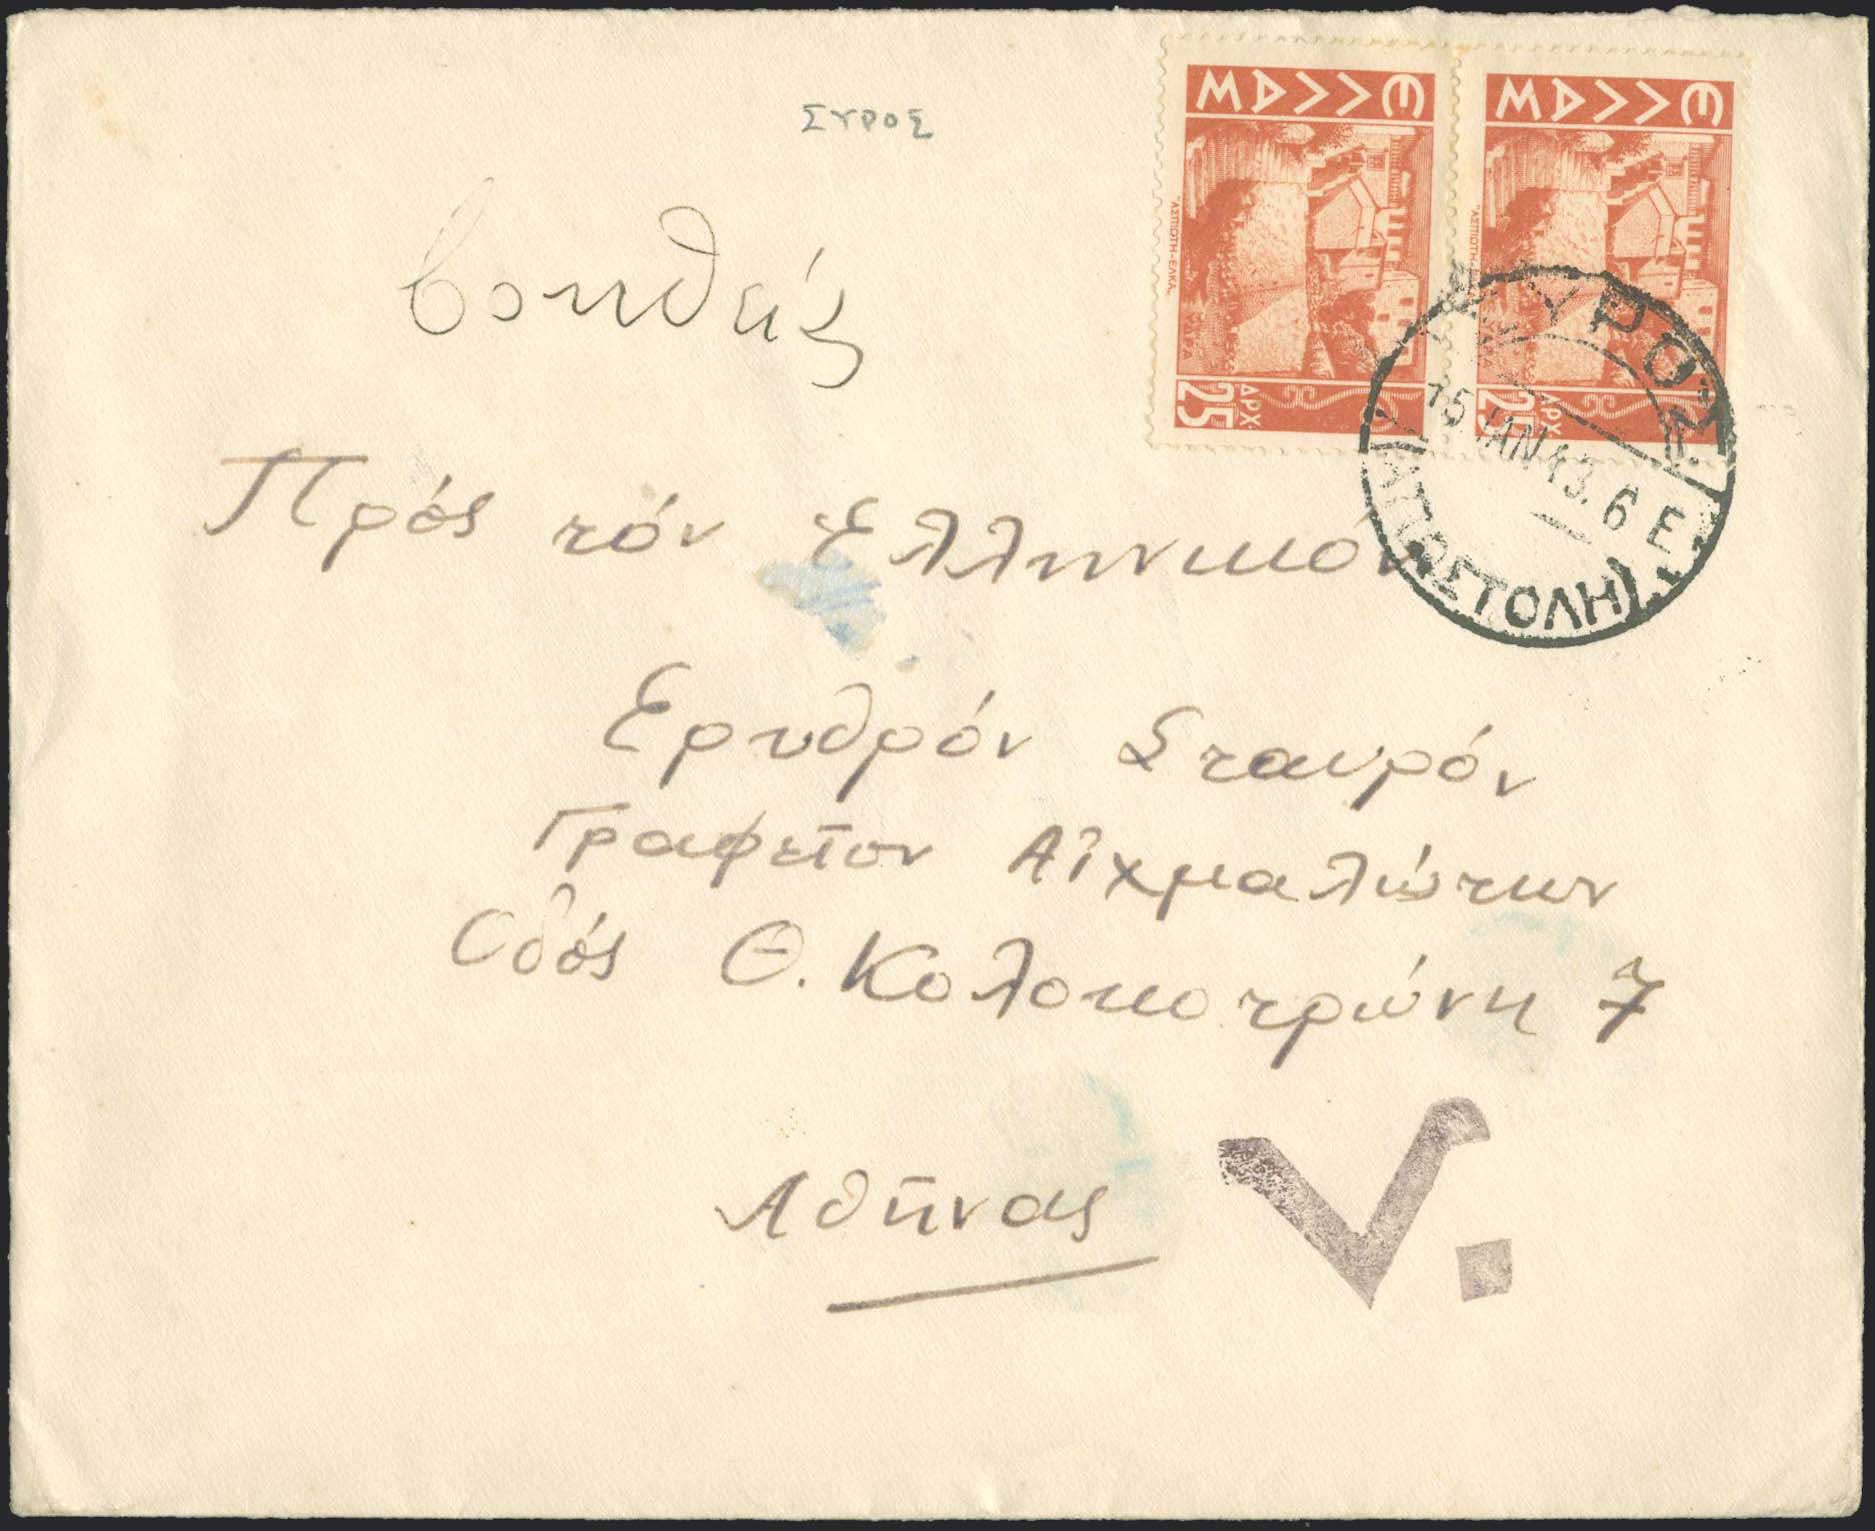 ΣΥΡΟΣ
ΕΛΛΑΣ ΕΛΛΑΣ
"ΑΣΠΙΩΤΗ-ΕΛΚΑ" "ΑΣΠΙΩΤΗ-
ΔΡΧ. 25 ΔΡΧ. 25
ΣΥΡΟΣ
15 ΙΑΝ 43. 6 Ε
(ΑΠΟΣΤΟΛΗ)
Πρός τόν Ελληνικόν
Ερυθρόν Σταυρόν
Γραφεῖον Αἰχμαλώτων
Οδός Θ. Κολοκοτρώνη 7
Αθήνας
V.